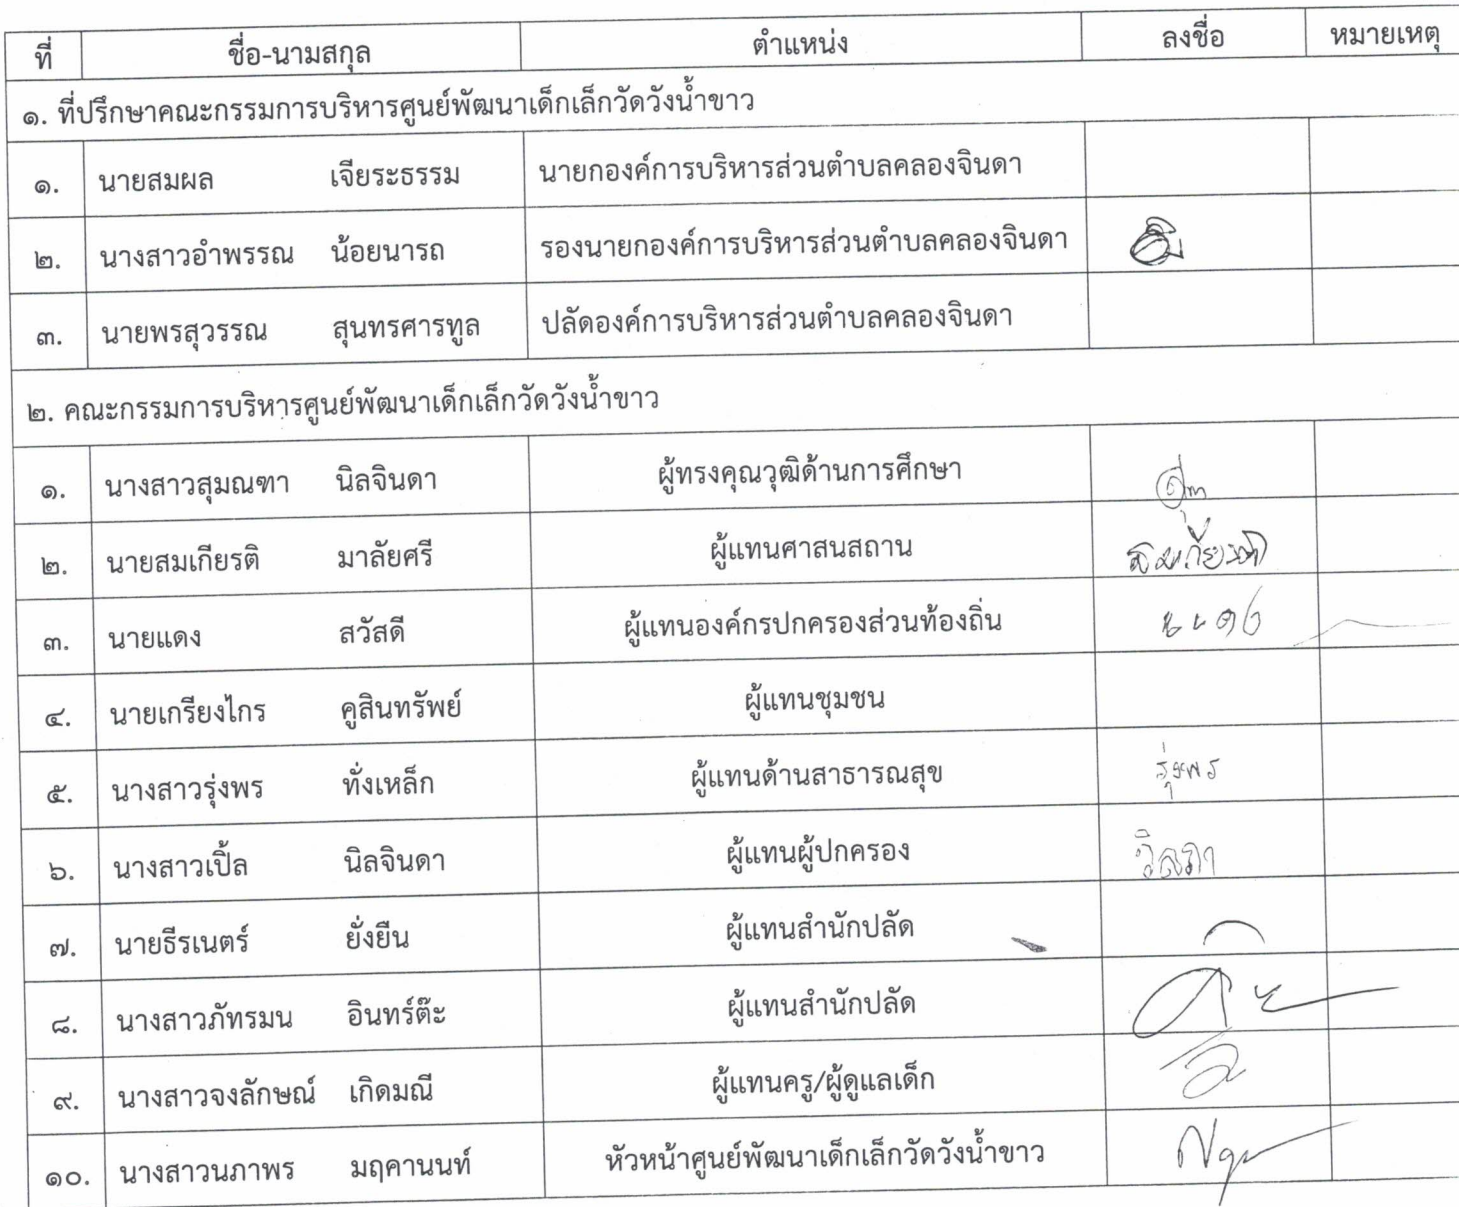 ที่ ชื่อ-นามสกุล ตำแหน่ง ลงชื่อ หมายเหตุ
๑. ที่ปรึกษาคณะกรรมการบริหารศูนย์พัฒนาเด็กเล็กวัดวังน้ำขาว
๑. นายสมผล เจียระธรรม นายกองค์การบริหารส่วนตำบลคลองจินดา
๒. นางสาวอำพรรณ น้อยนารถ รองนายกองค์การบริหารส่วนตำบลคลองจินดา
๓. นายพรสุวรรณ สุนทรศารทูล ปลัดองค์การบริหารส่วนตำบลคลองจินดา
๒. คณะกรรมการบริหารศูนย์พัฒนาเด็กเล็กวัดวังน้ำขาว
๑. นางสาวสุมณฑา นิลจินดา ผู้ทรงคุณวุฒิด้านการศึกษา
๒. นายสมเกียรติ มาลัยศรี ผู้แทนศาสนสถาน สมเกียรติ
๓. นายแดง สวัสดี ผู้แทนองค์กรปกครองส่วนท้องถิ่น
๔. นายเกรียงไกร คูสินทรัพย์ ผู้แทนชุมชน
๕. นางสาวรุ่งพร ทั่งเหล็ก ผู้แทนด้านสาธารณสุข รุ่งพร
๖. นางสาวเปิ้ล นิลจินดา ผู้แทนผู้ปกครอง
๗. นายธีรเนตร์ ยั่งยืน ผู้แทนสำนักปลัด
๘. นางสาวภัทรมน อินทร์ต๊ะ ผู้แทนสำนักปลัด
๙. นางสาวจงลักษณ์ เกิดมณี ผู้แทนครู/ผู้ดูแลเด็ก
๑๐. นางสาวนภาพร มฤคานนท์ หัวหน้าศูนย์พัฒนาเด็กเล็กวัดวังน้ำขาว